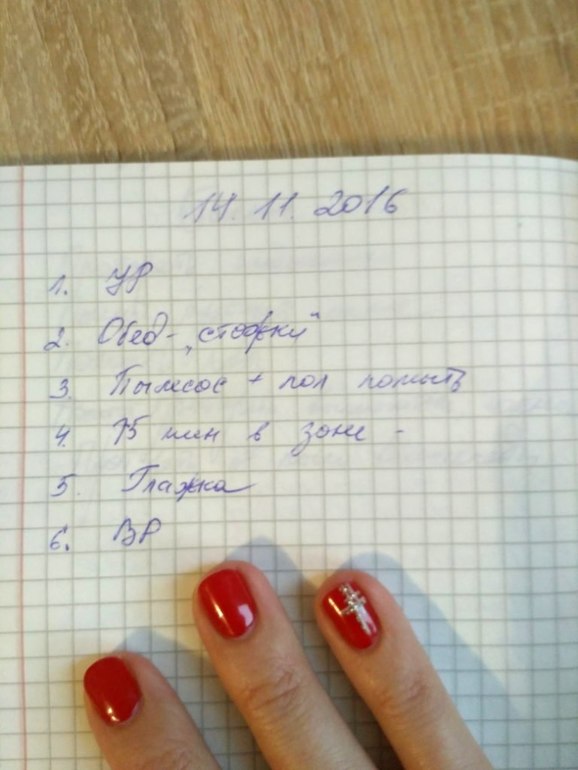 14. 11. 2016
1. УР
2. Обед - „стожки"
3. Пылесос + пол помыть
4. 75 мин в зоне -
5. Глажка
6. ВР